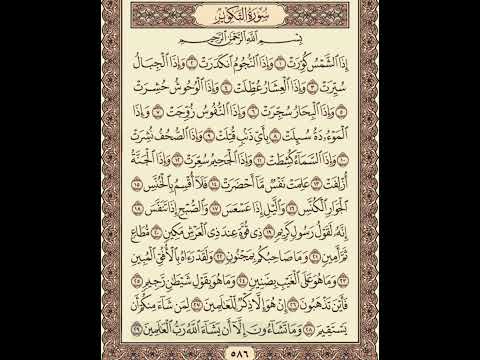 سُورَةُ التَّكْوِيرِ
بِسْمِ اللَّهِ الرَّحْمَٰنِ الرَّحِيمِ
إِذَا الشَّمْسُ كُوِّرَتْ ١ وَإِذَا النُّجُومُ انكَدَرَتْ ٢ وَإِذَا الْجِبَالُ
سُيِّرَتْ ٣ وَإِذَا الْعِشَارُ عُطِّلَتْ ٤ وَإِذَا الْوُحُوشُ حُشِرَتْ
٥ وَإِذَا الْبِحَارُ سُجِّرَتْ ٦ وَإِذَا النُّفُوسُ زُوِّجَتْ ٧ وَإِذَا
الْمَوْءُۥدَةُ سُئِلَتْ ٨ بِأَيِّ ذَنۢبٍ قُتِلَتْ ٩ وَإِذَا الصُّحُفُ نُشِرَتْ
١٠ وَإِذَا السَّمَآءُ كُشِطَتْ ١١ وَإِذَا الْجَحِيمُ سُعِّرَتْ ١٢ وَإِذَا الْجَنَّةُ
أُزْلِفَتْ ١٣ عَلِمَتْ نَفْسٌ مَّآ أَحْضَرَتْ ١٤ فَلَآ أُقْسِمُ بِالْخُنَّسِ ١٥
الْجَوَارِ الْكُنَّسِ ١٦ وَالَّيْلِ إِذَا عَسْعَسَ ١٧ وَالصُّبْحِ إِذَا تَنَفَّسَ ١٨
إِنَّهُۥ لَقَوْلُ رَسُولٍ كَرِيمٍ ١٩ ذِي قُوَّةٍ عِندَ ذِي الْعَرْشِ مَكِينٍ ٢٠ مُّطَاعٍ
ثَمَّ أَمِينٍ ٢١ وَمَا صَاحِبُكُم بِمَجْنُونٍ ٢٢ وَلَقَدْ رَءَاهُ بِالْأُفُقِ الْمُبِينِ
٢٣ وَمَا هُوَ عَلَى الْغَيْبِ بِضَنِينٍ ٢٤ وَمَا هُوَ بِقَوْلِ شَيْطَٰنٍ رَّجِيمٍ ٢٥
فَأَيْنَ تَذْهَبُونَ ٢٦ إِنْ هُوَ إِلَّا ذِكْرٌ لِّلْعَٰلَمِينَ ٢٧ لِمَن شَآءَ مِنكُمْ أَن
يَسْتَقِيمَ ٢٨ وَمَا تَشَآءُونَ إِلَّآ أَن يَشَآءَ اللَّهُ رَبُّ الْعَٰلَمِينَ ٢٩
٥٨٦